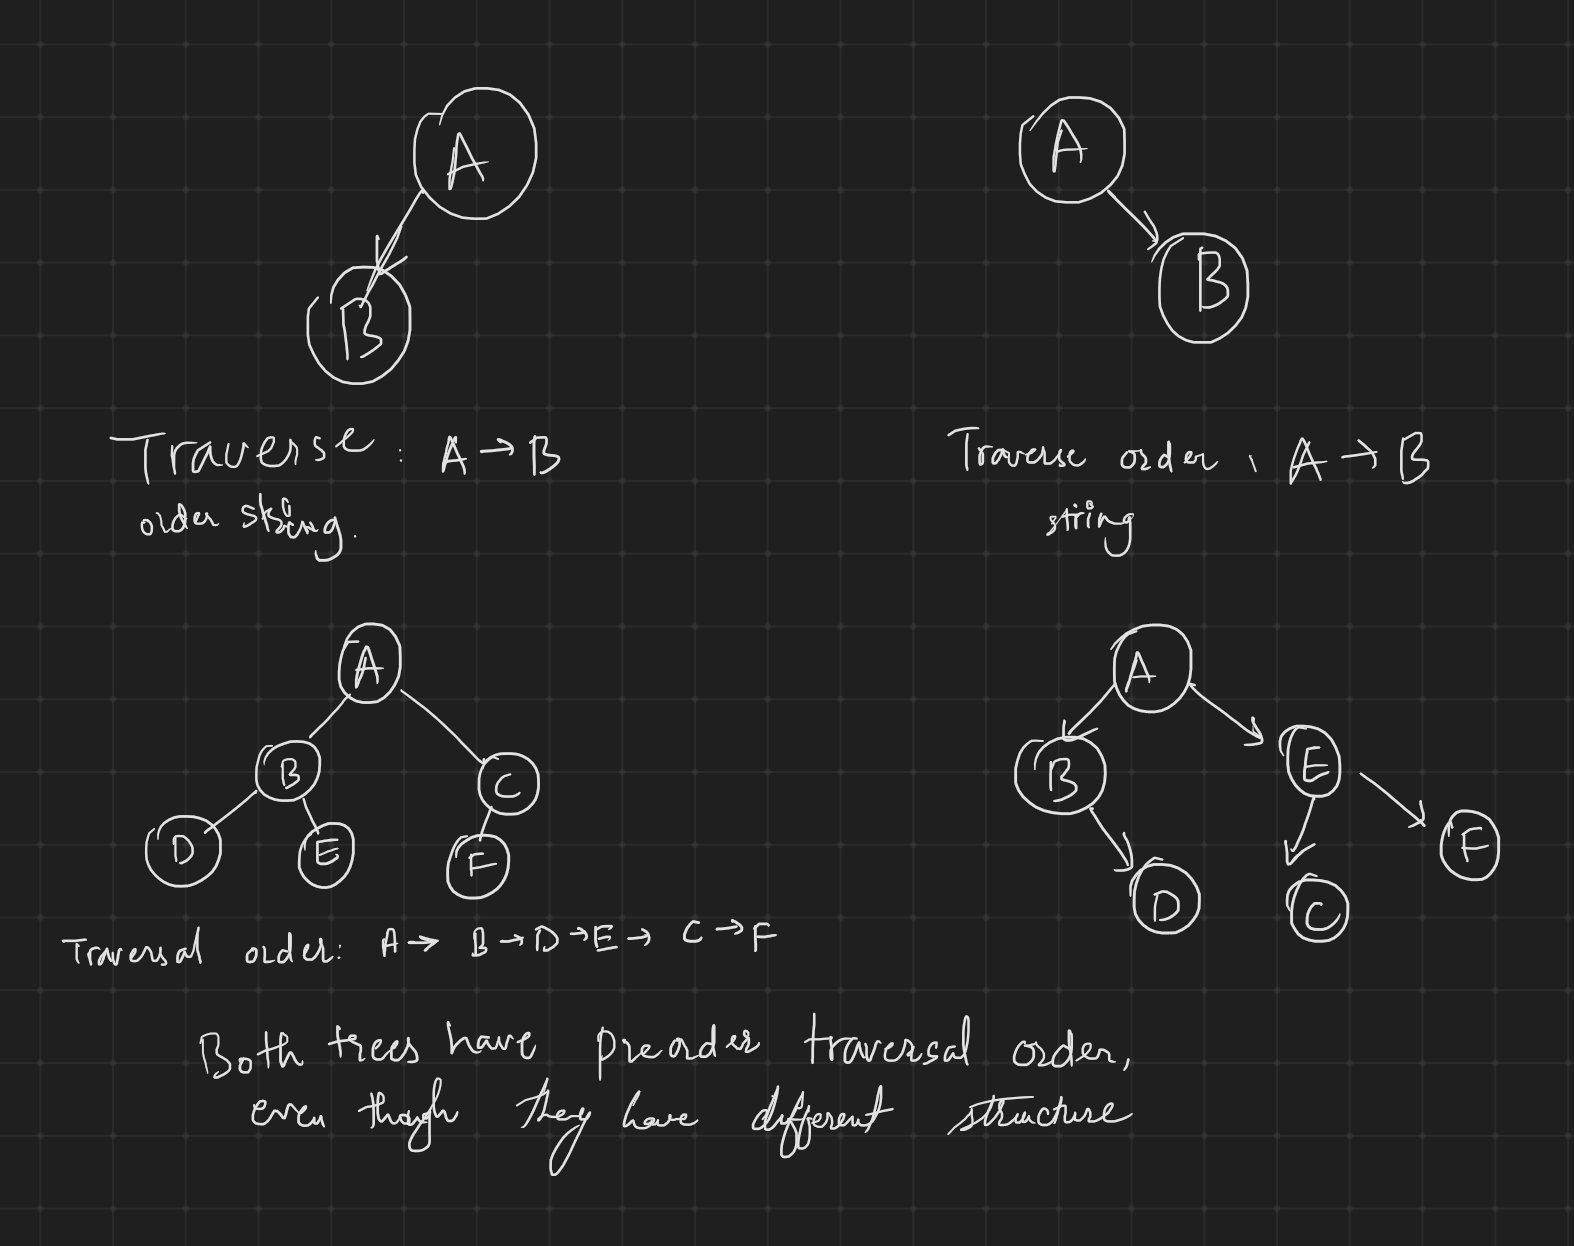 A
B
Traverse : A → B
order string.
A
B
Traverse order : A → B
string
A
B
C
D
E
F
Traversal order: A → B → D → E → C → F
A
B
E
D
C
F
Both trees have preorder traversal order,
even though they have different structure